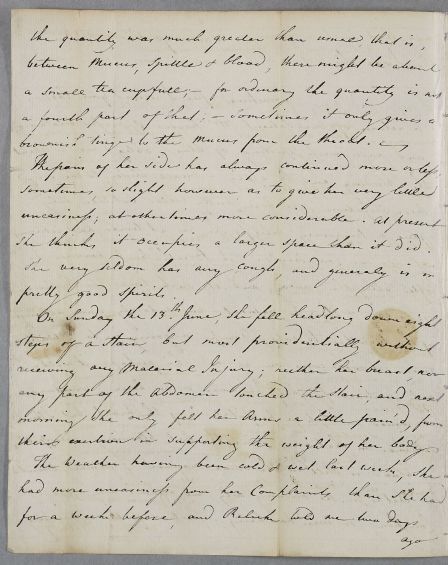 the quantity was much greater than usual that is,
between Mucus, Spittle & blood, there might be about
a small tea cup full; – for ordinary the quantity is not
a fourth part of that; – sometimes it only gives a
brownish tinge to the Mucus from the throat. –
The pain of her side has always continued more or less
sometimes so slight however as to give her very little
uneasiness; at other times more considerable. At present
She thinks it occupies a larger space than it did.
She very seldom has any Cough, and generaly is in
pretty good Spirits.
On Sunday the 13th June, She fell headlong down eight
steps of a Stair, but most providentially without
receiving any Material Injury; neither her breast, nor
any part of the Abdomen touched the Stair, and next
morning She only felt her Arms a little pain'd, from
their exertion in supporting the weight of her body.
The Weather having been cold & wet last week, She
had more uneasiness from her Complaints than She had
for a week before, and told me two days
ago